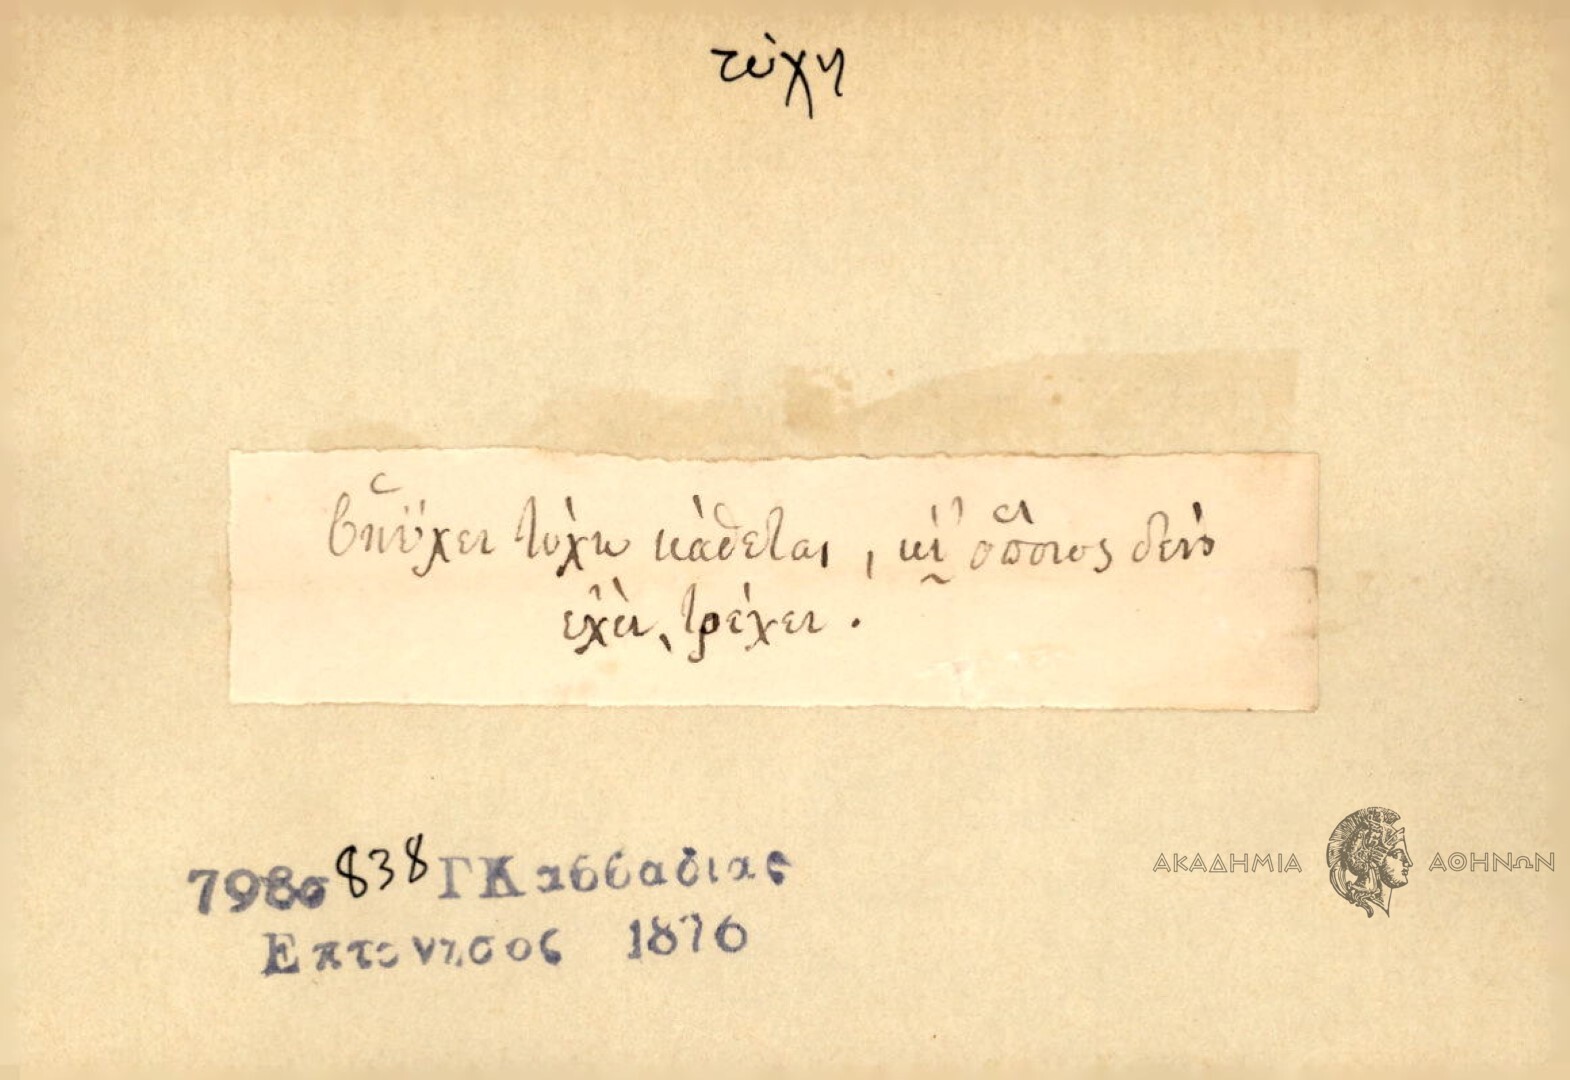 τύχη
τύχη κάθεται, κι' ὅποιος δὲν
ἔχει, τρέχει.
798σ 838 Γ Κασσαδιας
Επτανησος 1876
ΑΚΑΔΗΜΙΑ ΑΘΗΝΩΝ